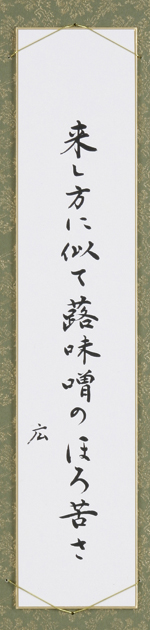 来し方に似て蕗味噌のほろ苦さ
広